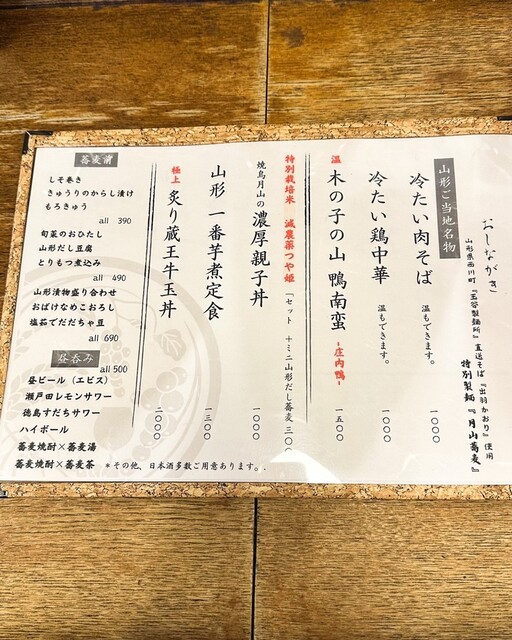 おしながき
山形県西川町『玉谷製麺所』直送そば『出羽かおり』使用
特別製麺『月山蕎麦』
山形ご当地名物
冷たい肉そば 温もできます。 一〇〇〇
冷たい鶏中華 温もできます。 一〇〇〇
温 木の子の山 鴨南蛮 -庄内鴨- 一五〇〇
特別栽培米 減農薬つや姫 「セット +ミニ山形だし蕎麦 三〇〇
焼鳥月山の濃厚親子丼 一〇〇〇
山形 一番芋煮定食 一三〇〇
極上 炙り蔵王牛玉丼 二〇〇〇
蕎麦前
しそ巻き
きゅうりのからし漬け
もろきゅう
all 390
旬菜のおひたし
山形だし豆腐
とりもつ煮込み
all 490
山形漬物盛り合わせ
おばけなめこおろし
塩茹でだだちゃ豆
all 690
昼呑み
all 500
昼ビール（エビス）
瀬戸田レモンサワー
徳島すだちサワー
ハイボール
蕎麦焼酎×蕎麦湯
蕎麦焼酎×蕎麦茶
＊その他、日本酒多数ご用意あります。.